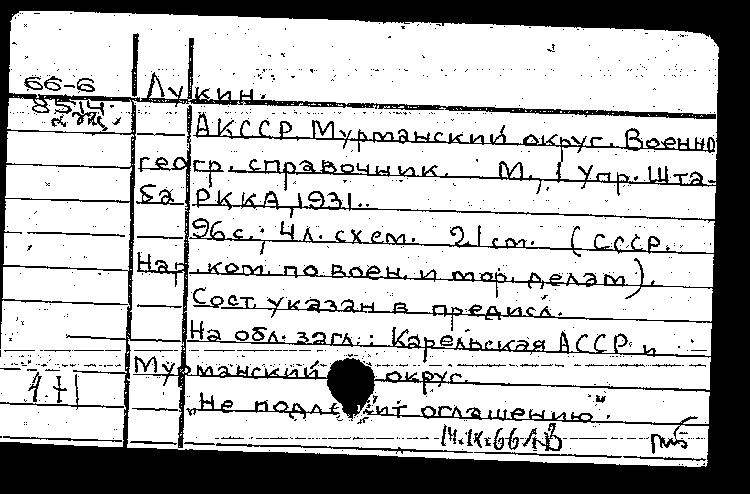 66-6 Лукин.
8514
2 экз.
АКССР. Мурманский округ. Военно
геогр. справочник. М., I Упр. Шта-
ба РККА, 1931.
96 с.; 4 л. схем. 21 cm. (СССР.
Нар. ком. по воен. и мор. делам).
Сост. указан в предисл.
На обл. загл.: Карельская АССР и
Мурманский округ.
4 + 1
„Не подлежит оглашению".
14.IX.66